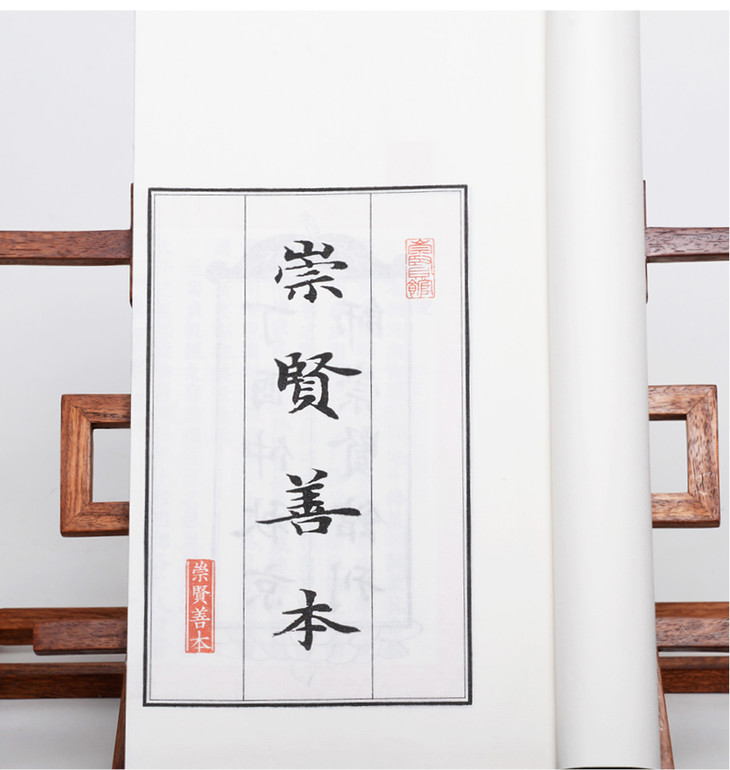 崇賢館
崇賢善本
崇賢善本